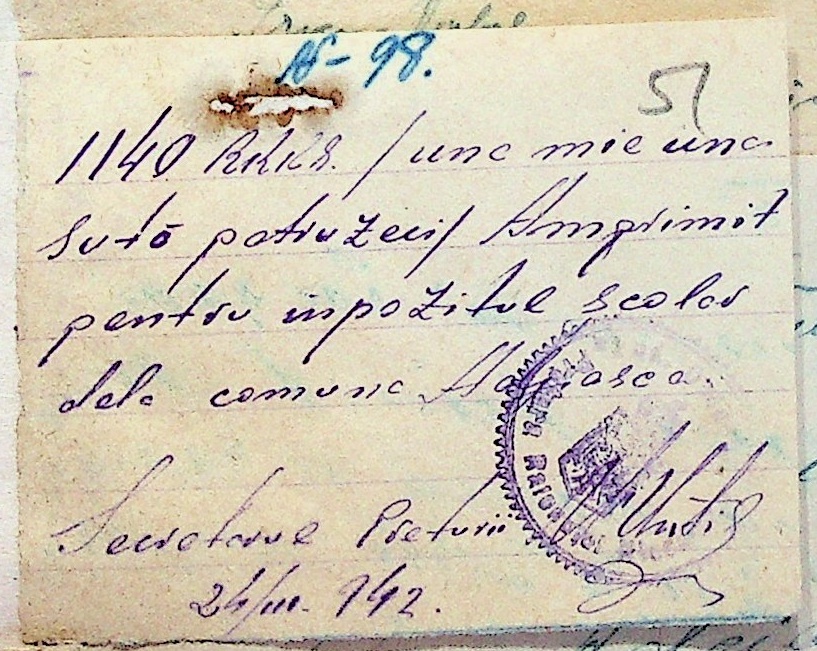 N-98.
51
1140 RKKS. /una mie una
sută patruzeci/ Amprimit
pentru inpozitul scolar
dela comuna
Secretarul Preturii
24/III. 942.